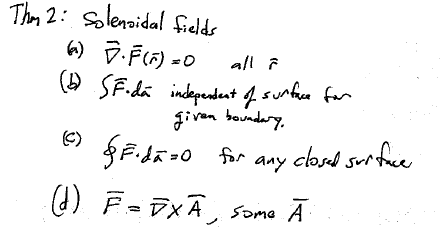 Thm 2: Solenoidal fields
(a) ∇̄·F̄(r̄) = 0 all r̄
(b) ∫F̄·dā independent of surface for
given boundary.
(c) ∮F̄·dā = 0 for any closed surface
(d) F̄ = ∇̄×Ā, some Ā